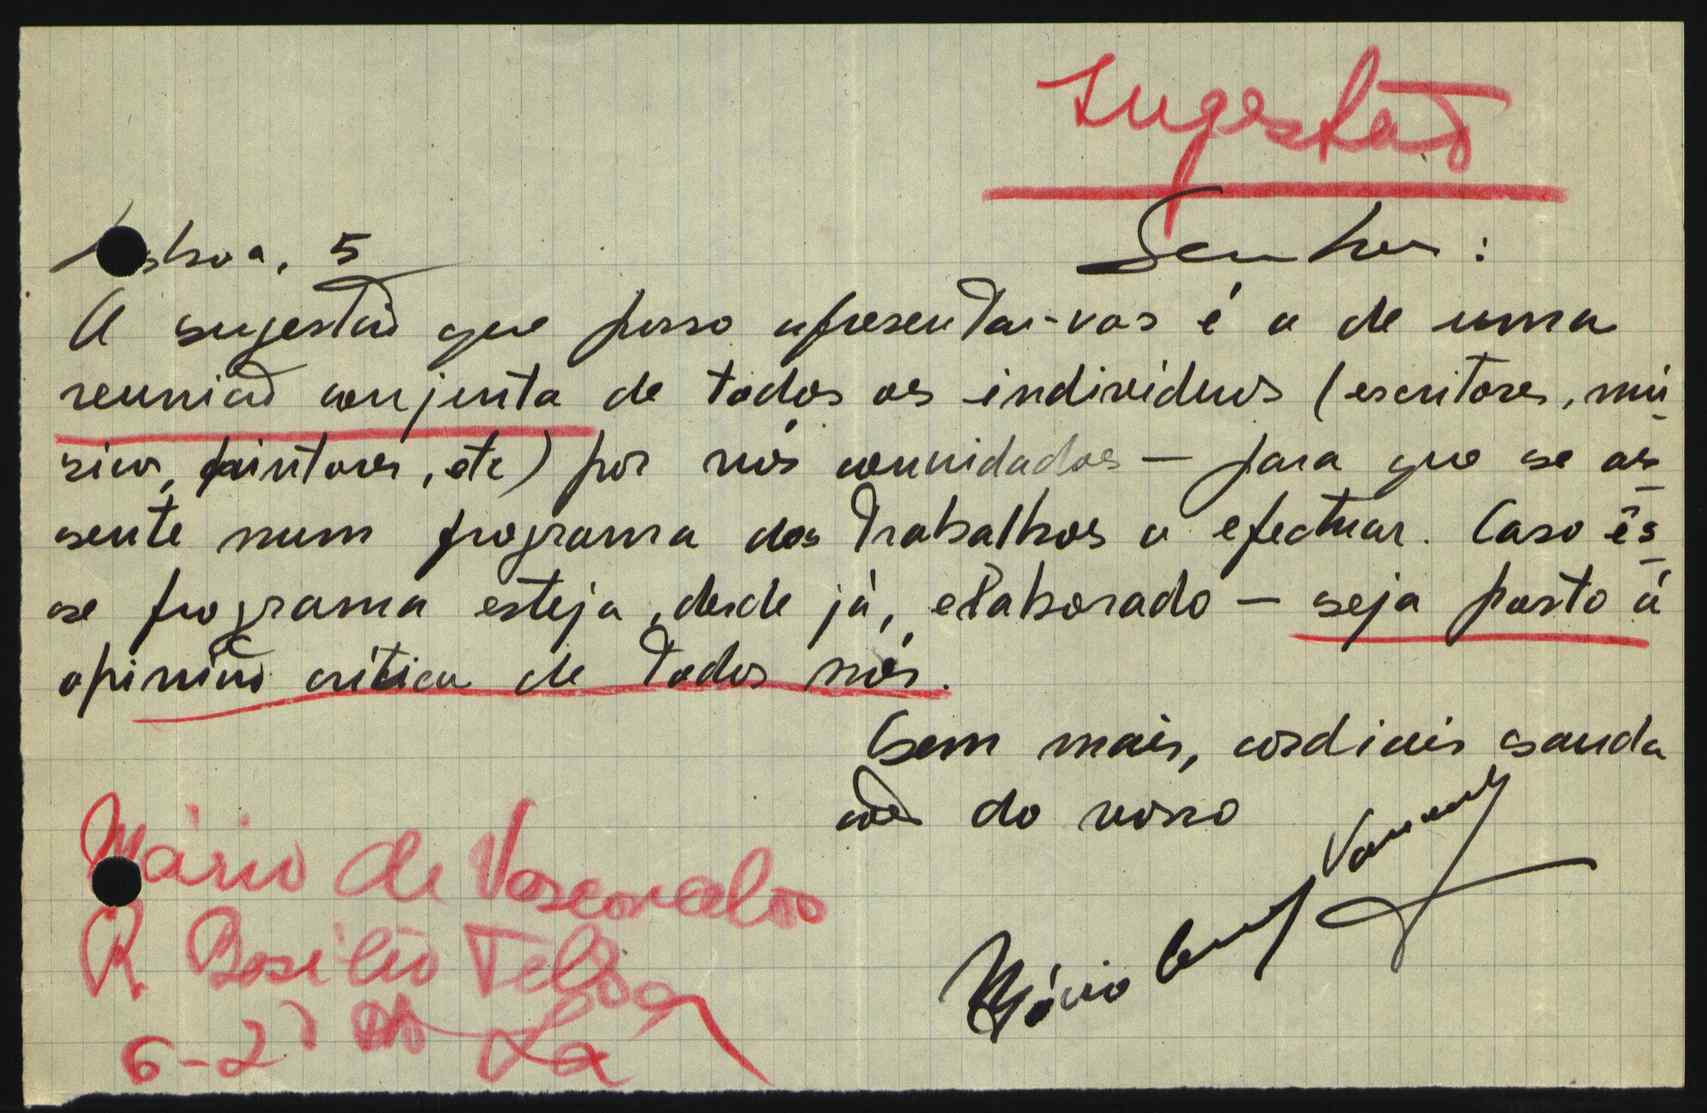 Sugestão
Lisboa, 5
Senhor:
A sugestão que posso apresentar-vos é a de uma
reunião conjunta de todos os individuos (escritores, mú-
sicos, pintores, etc) por nós convidados — para que se as-
sente num programa dos trabalhos a efectuar. Caso ês-
se programa esteja, desde já, elaborado — seja posto á
opinião crítica de todos nós.
Sem mais, cordiais sauda
ções do vosso
Mário Vasconcelos
Mário de Vasconcelos
R Basilio Teles
6-2º Dto Lx